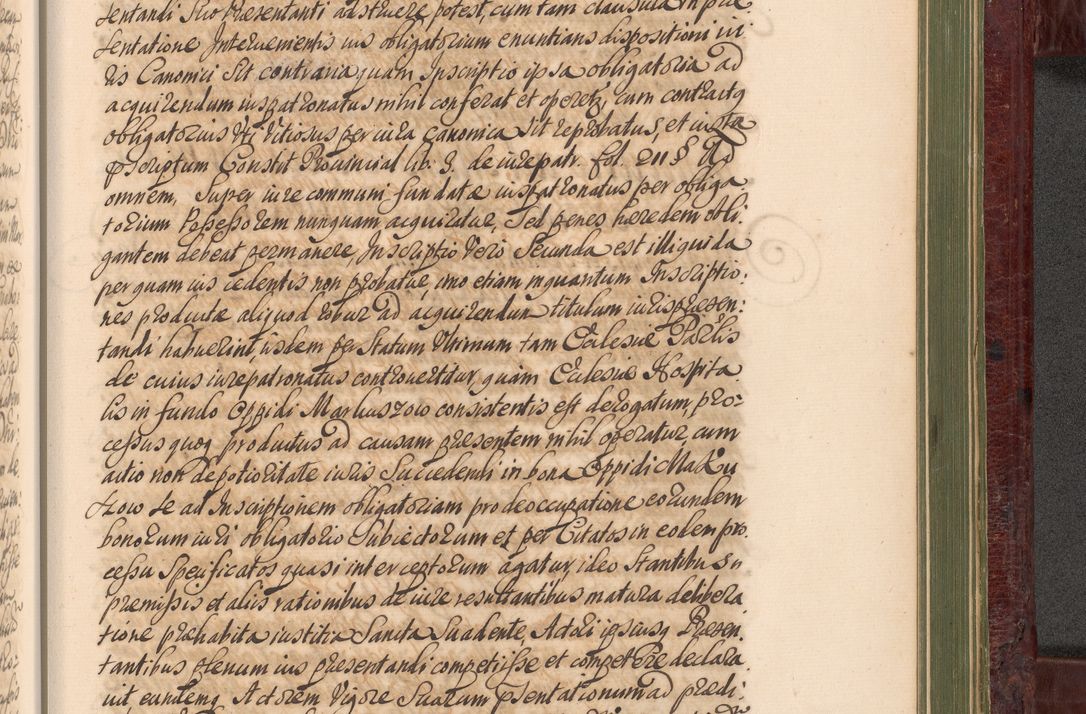 sentandi suo Præsentanti adstruere potest, cum tam clausula in præ
sentatione Intervenientis ius obligatorium enuntians dispositioni iu
ris Canonici sit contraria quam Inscriptio ipsa obligatoria ad
acquirendum ius patronatus nihil conferat et operetr, cum contractq
obligatorius uti vitiosus per iura canonica sit reprobatus, et iuxta
pscriptum Constit Provincial lib. 3. de iurepatr. fol. 211 § Ad
omnem, super iure communi fundatæ ius patronatus per obliga
torium Possessorem nunquam acquiratur, sed penes hæredem obli
gantem debeat permanere, Inscriptio vero Secunda est illiquida
per quam ius cedentis non probatur, imo etiam inquantum Inscriptio:
nes productæ aliquod robur ad acquirendum titulum iurispræsen:
tandi habuerint, iisdem per Statum Ultimum tam Ecclesiæ Parlis
de cuius iurepatronatus controvertitur, quàm Ecclesiæ Hospita
lis in fundo Oppidi Markuszow consistentis est derogatum, pro:
cessus quoq productus ad causam præsentem nihil operatur, cum
actio non de potioritate iuris Succedendi in bona Oppidi Marku
szow se ad Inscriptionem obligatoriam pro deoccupatione eorundem
bonorum iuri obligatorio Subiectorum et per Citatos in eodem pro
cessu Specificatos quasi interceptorum agatur, ideo Stantibus
præmissis et aliis rationibus de iure resultantibus matura delibera
tione præhabita iustitia Sancta Suadente, Actori ipsiusq Præsen
tantibus plenum ius præsentandi competiisse et competere declara
vit eundemq Actorem Vigore Suarum psentationum ad prædi: